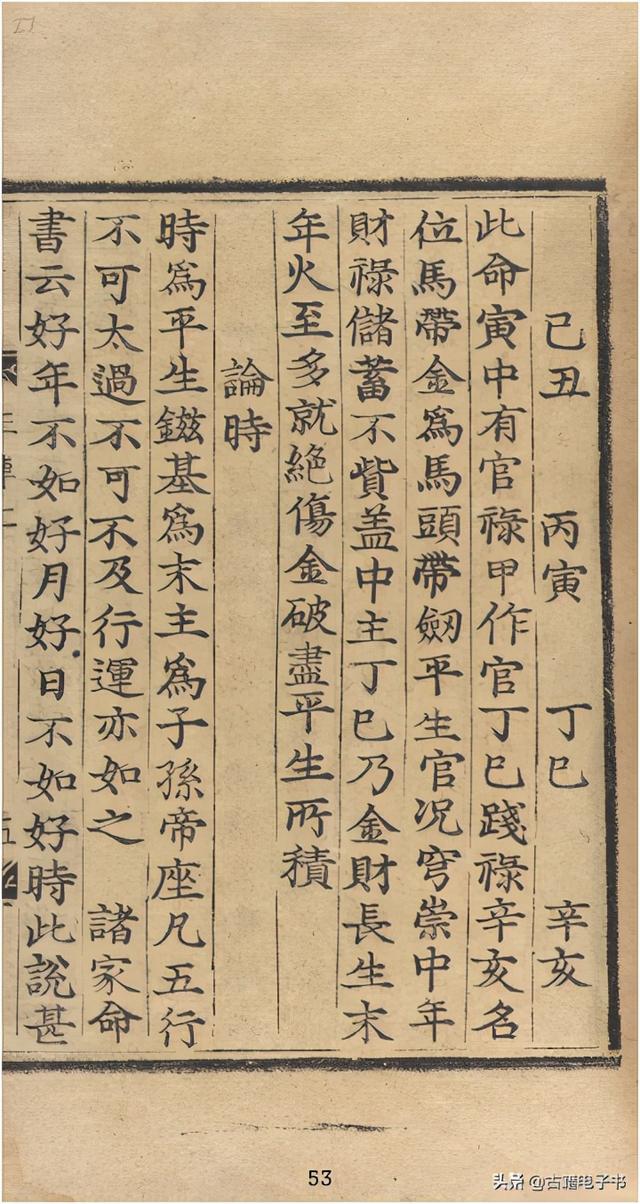 己丑 丙寅 丁巳 辛亥
此命寅中有官祿甲作官丁巳踐祿辛亥名
位馬帶金爲馬頭帶劒平生官况穹崇中年
財祿儲蓄不貲盖中主丁巳乃金財長生末
年火至多就絕傷金破盡平生所積
論時
時爲平生鎡基爲末主爲子孫帝座凡五行
不可太過不可不及行運亦如之 諸家命
書云好年不如好月好日不如好時此說甚
53
头条@古籍电子书